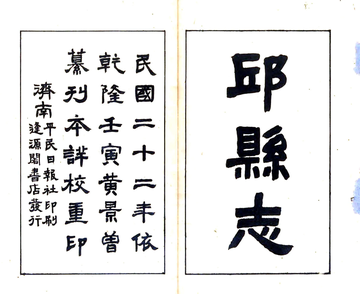 邱縣志
民國二十二年依
乾隆壬寅黃景曾
纂刋本詳校重印
濟南
平民日報社印刷
逢源閣書店發行